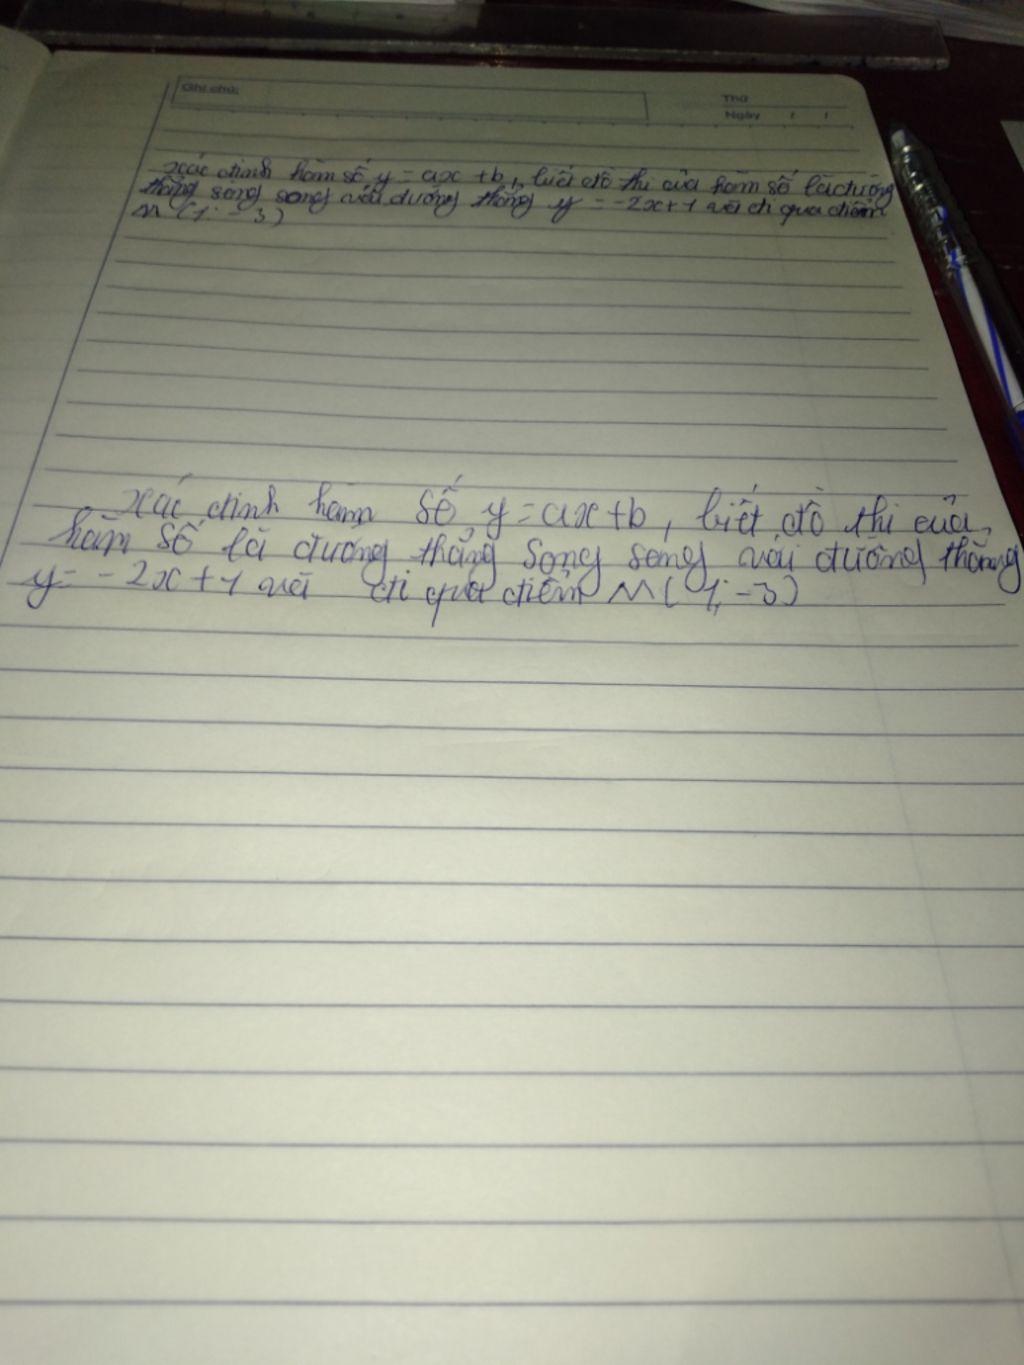 Ghi chú:
Thứ
Ngày / /
xác định hàm số y = ax + b, biết đồ thị của hàm số là đường
thẳng song song với đường thẳng y = -2x+1 và đi qua điểm
M (1; -3)
xác định hàm số y = ax+b, biết đồ thị của
hàm số là đường thẳng song song với đường thẳng
y = -2x+1 và đi qua điểm M(1; -3)